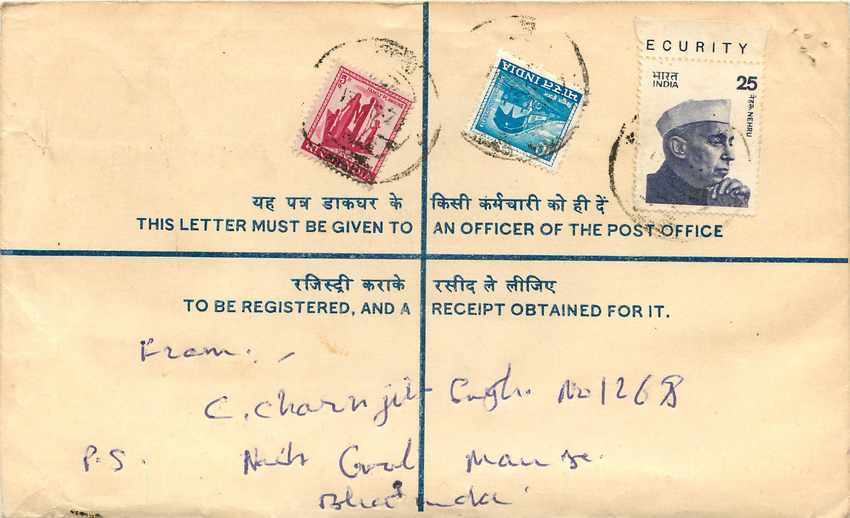 ECURITY
भारत 25
INDIA
नेहरू NEHRU
भारत INDIA
यह पत्र डाकघर के किसी कर्मचारी को ही दें
THIS LETTER MUST BE GIVEN TO AN OFFICER OF THE POST OFFICE
रजिस्ट्री कराके रसीद ले लीजिए
TO BE REGISTERED, AND A RECEIPT OBTAINED FOR IT.
From. -
C. Charnjit Singh. No 1268
P.S.